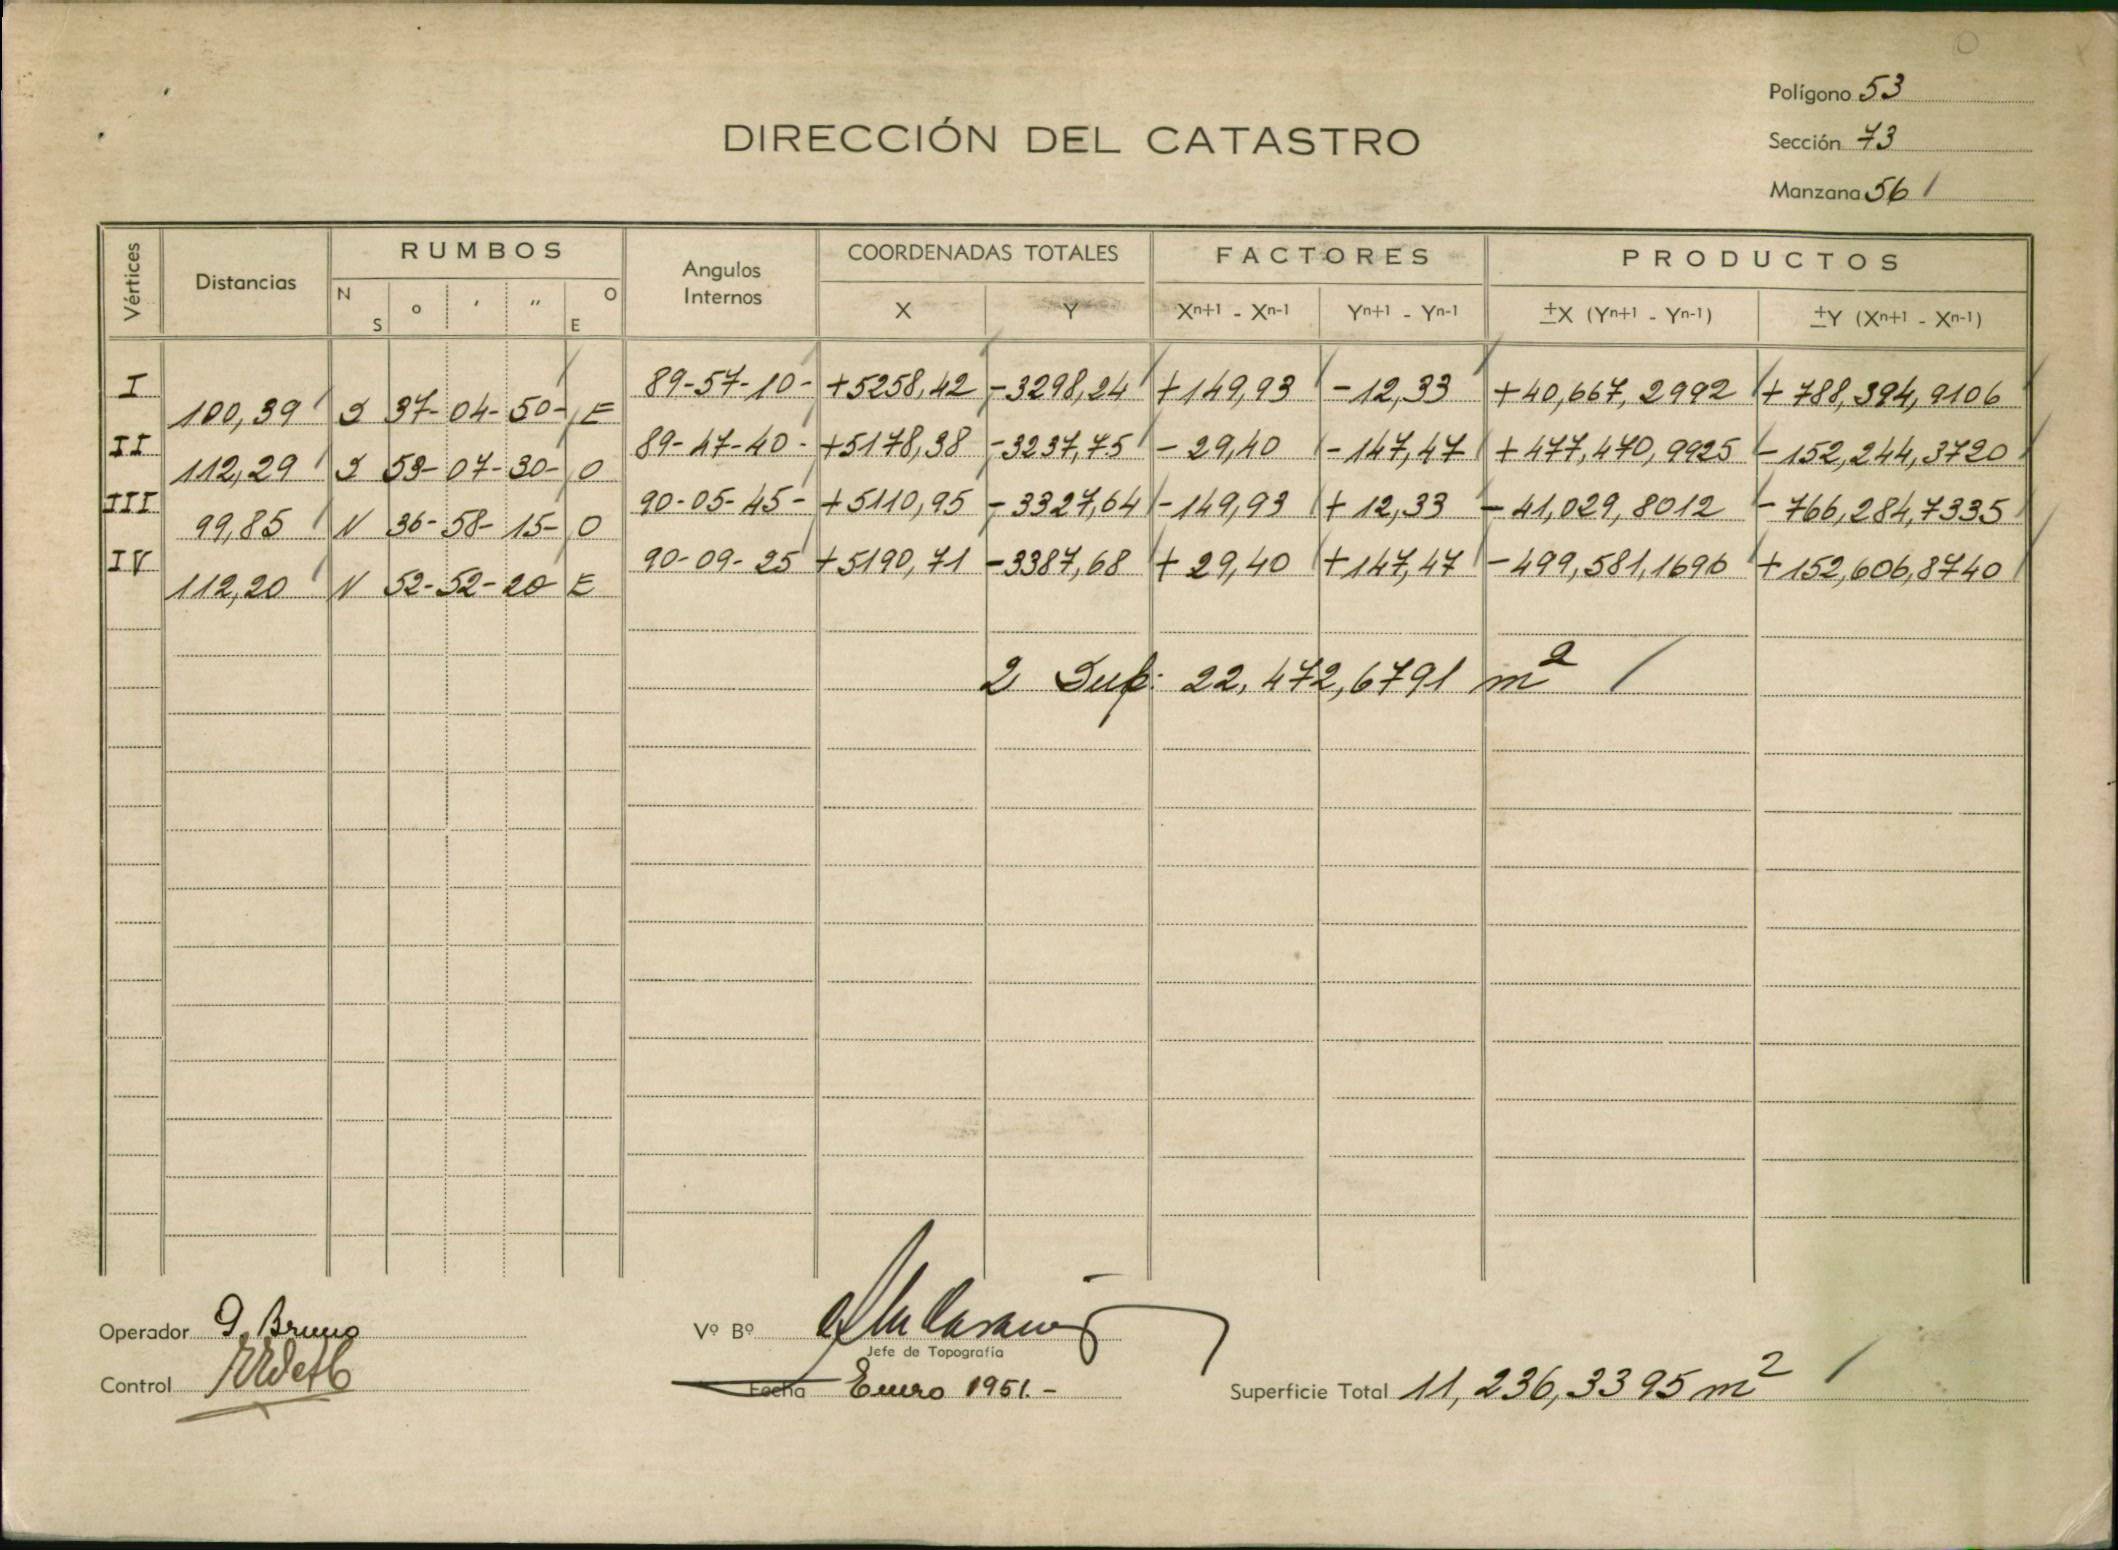 Polígono 53
DIRECCIÓN DEL CATASTRO
Sección 73
Manzana 56
Vértices Distancias RUMBOS Angulos Internos COORDENADAS TOTALES FACTORES PRODUCTOS
N S o ' '' O E X Y Xn+1 - Xn-1 Yn+1 - Yn-1 ±X (Yn+1 - Yn-1) ±Y (Xn+1 - Xn-1)
I 89-57-10- +5258,42 -3298,24 +149,93 -12,33 +40,667,2992 +788,394,9106
100,39 S 37-04-50- E
II 89-47-40- +5178,38 -3237,75 -29,40 -147,47 +477,470,9925 -152,244,3720
112,29 S 53-07-30- O
III 90-05-45- +5110,95 -3327,64 -149,93 +12,33 -41,029,8012 -766,284,7335
99,85 N 36-58-15- O
IV 90-09-25 +5190,71 -3387,68 +29,40 +147,47 -499,581,1696 +152,606,8740
112,20 N 52-52-20 E
2 Sup: 22,472,6791 m2
Operador G. Bruno
Vº Bº
Jefe de Topografía
Control
Fecha Enero 1951.-
Superficie Total 11,236,3395 m2